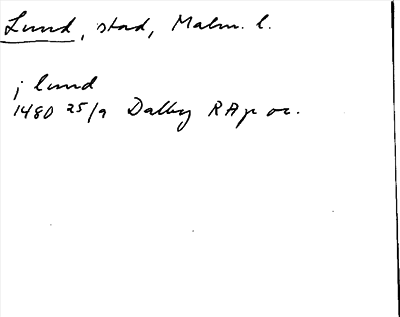 Lund, stad, Malm. l.
j lund
1480 25/9 Dalby RAp or.